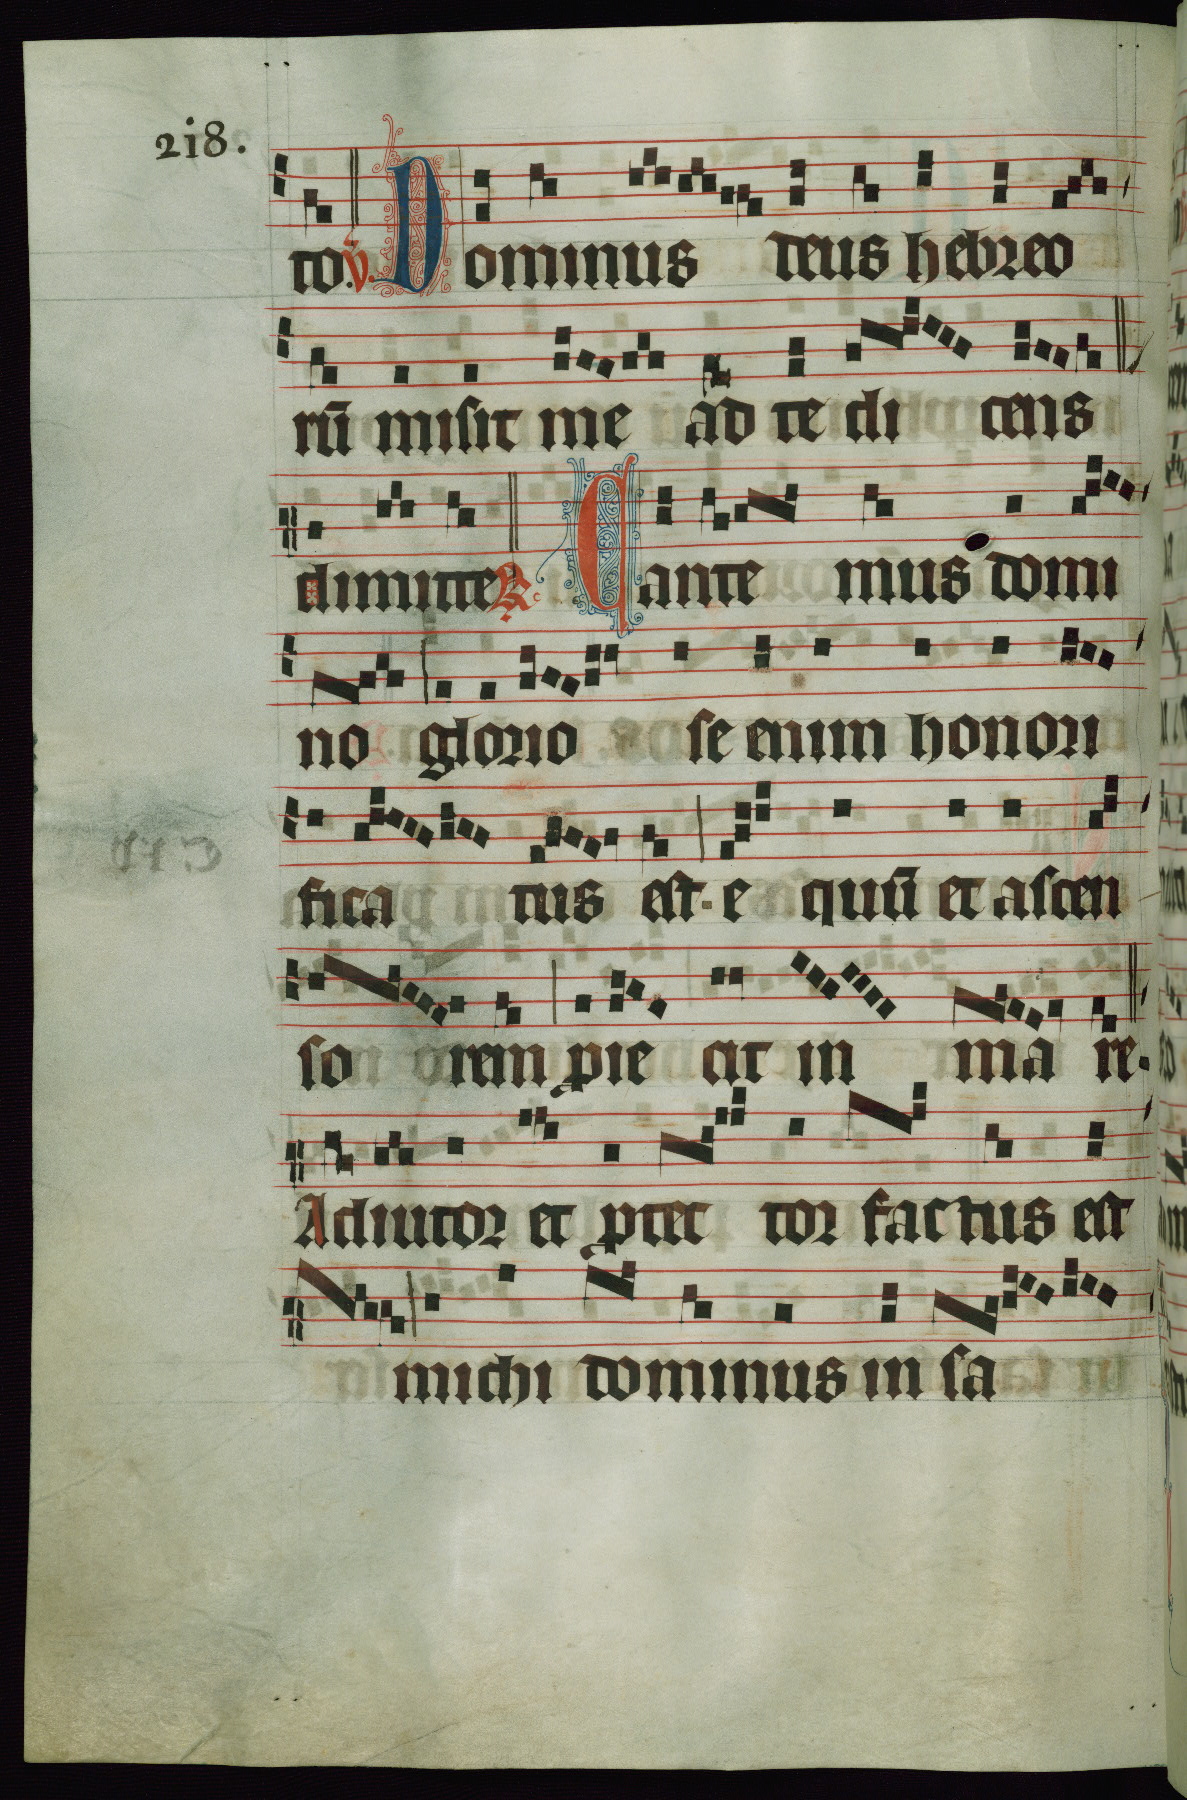 218.
to. v. Dominus deus hebreo
rū misit me ad te di cens
dimitte R. Cante mus domi
no glorio se enim honori
fica tus est. e quū et ascen
so rem proie cit in ma re.
Adiutor et ptec tor factus est
michi dominus in sa